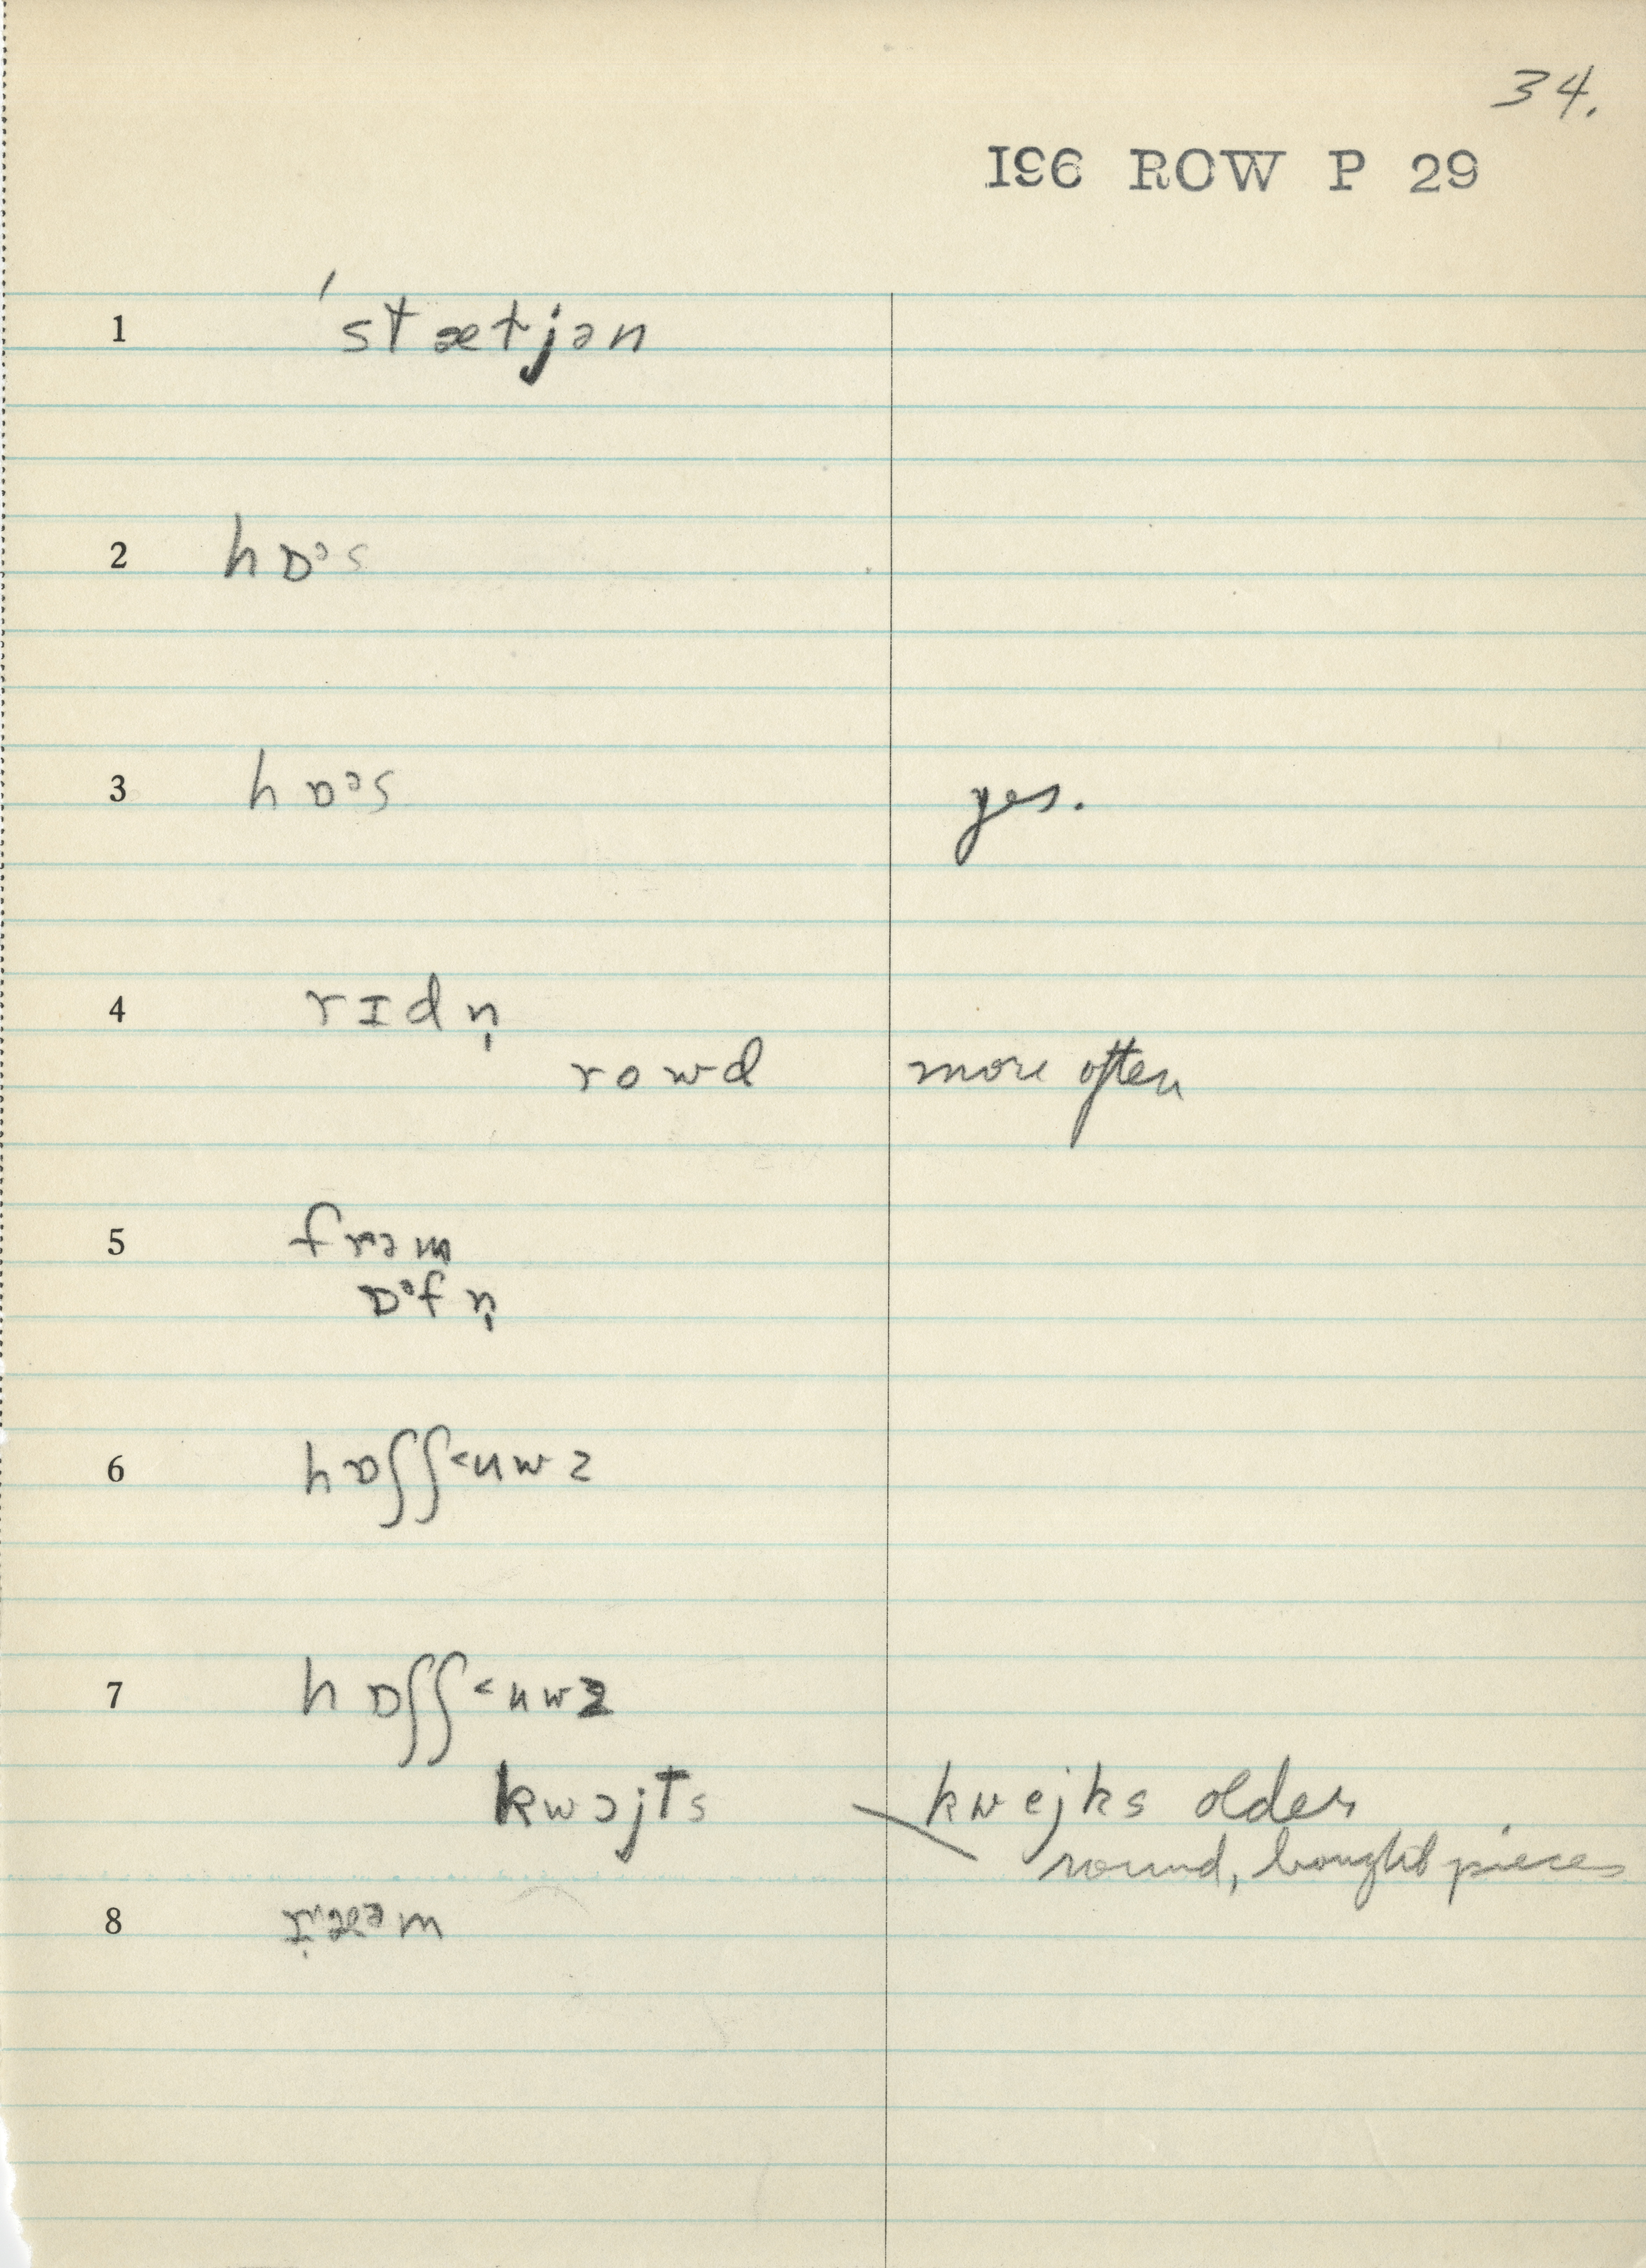 34.
196 ROW P 29
1 ˈstætjən
2 hɒᵊs
3 hɒᵊs yes.
4 rɪdn̩
rowd more often
5 frəm
ɒᵊfn̩
6 hɒʃʃ<uwz
7 hɒʃʃ<uwz
kwɔjts kwejks older
round, bought pieces
8